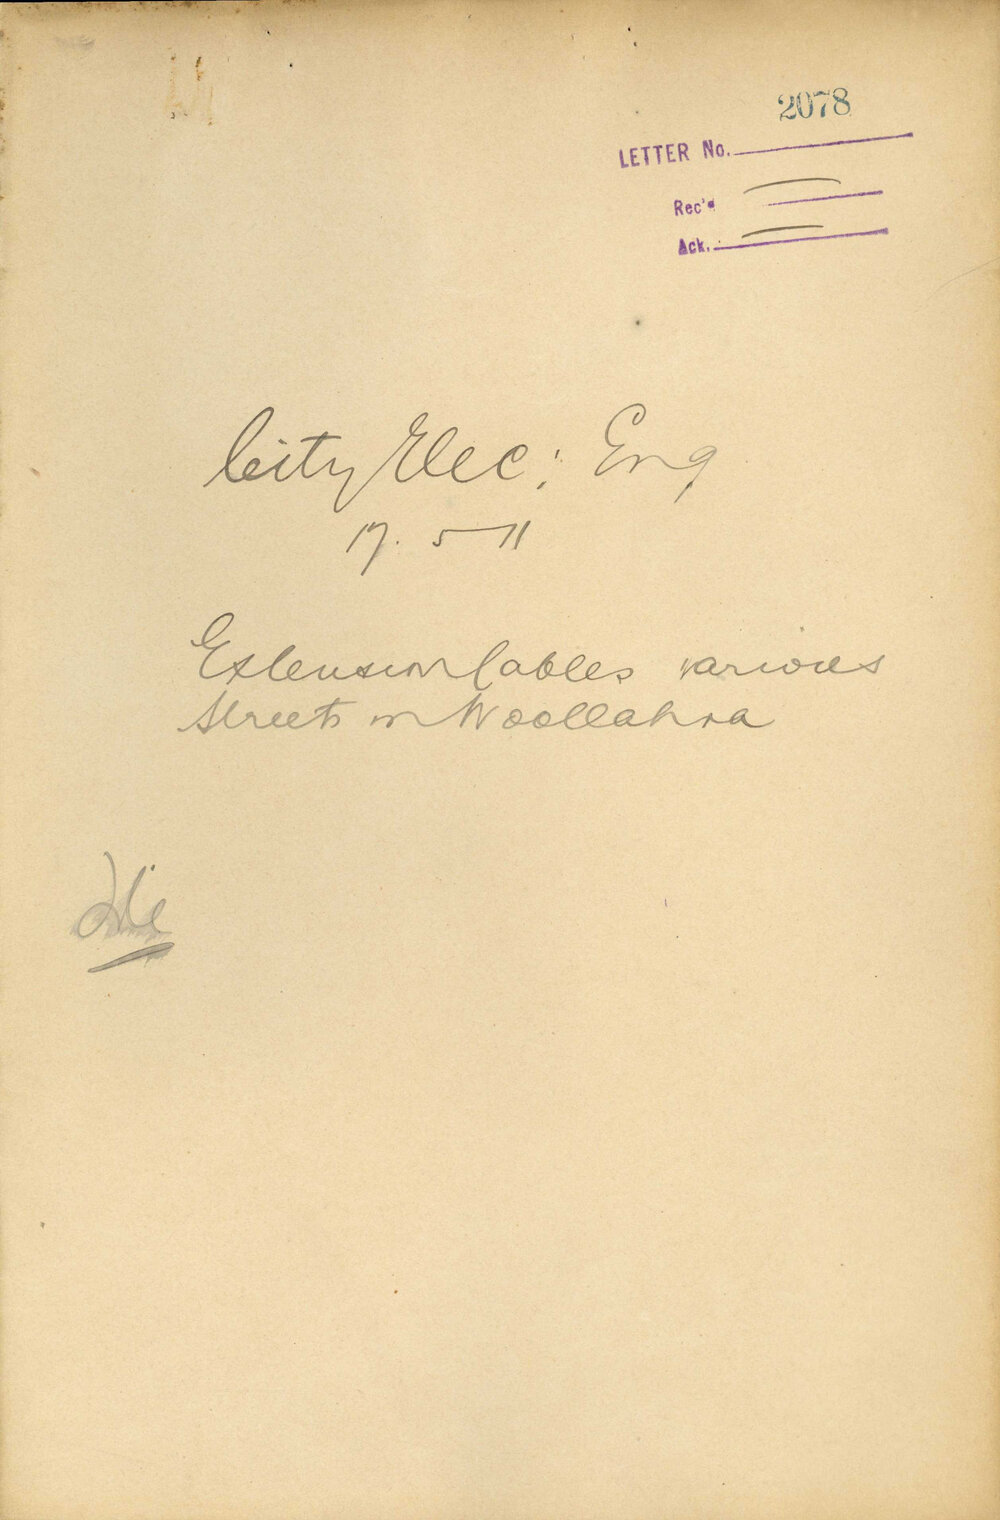 2078
LETTER No.
Rec'd
Ack.
City Elec: Eng
17. 5 11
Extension Cables various
Streets in Woollahra